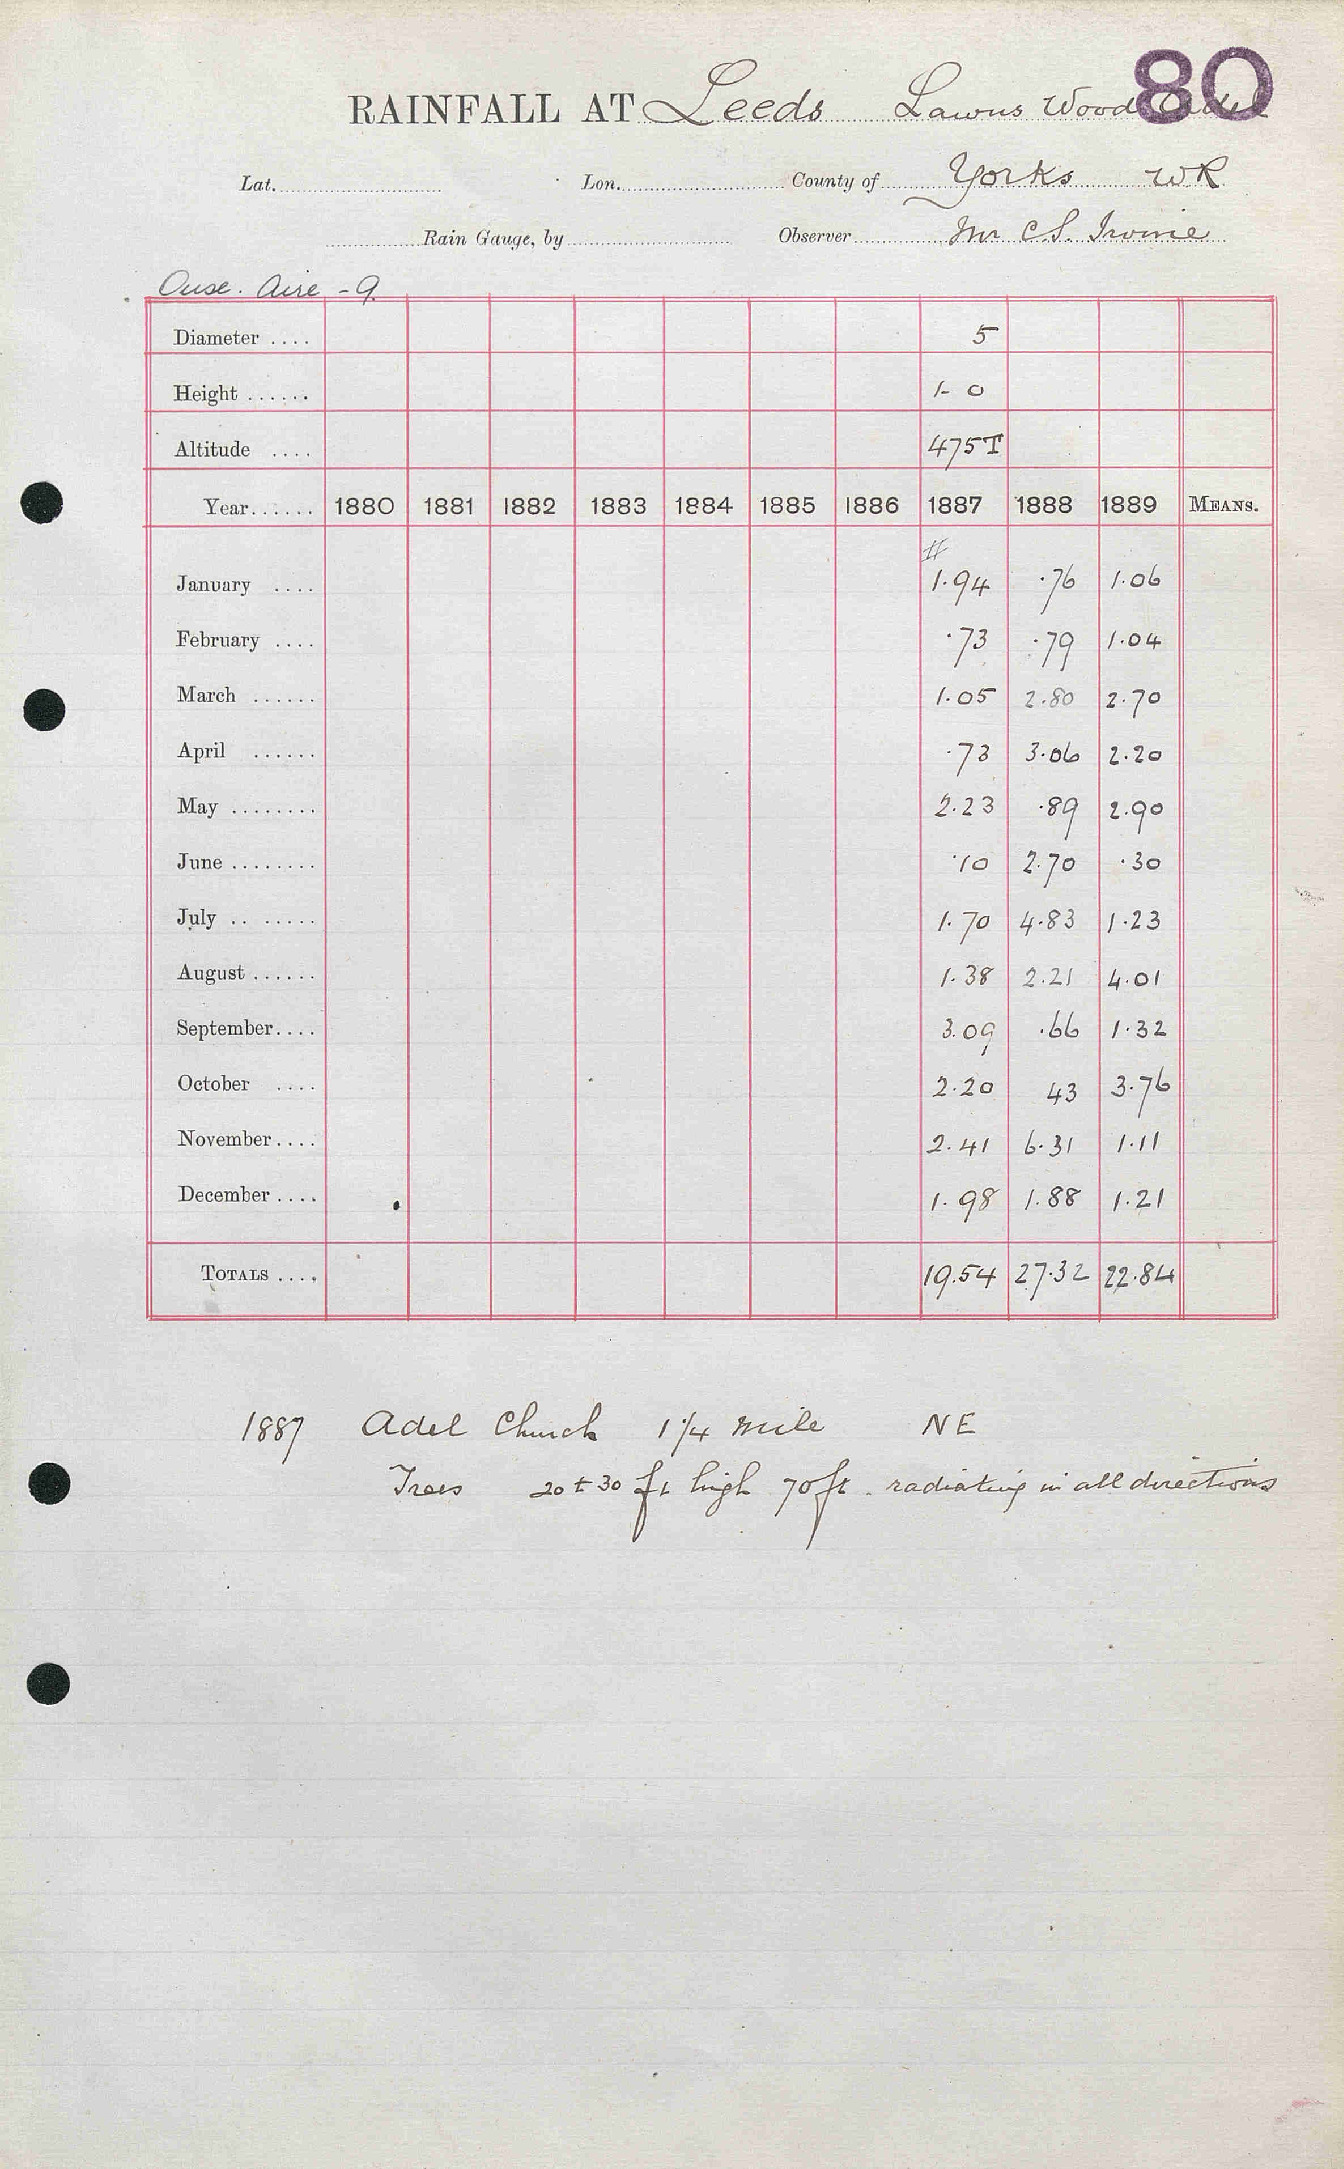 80
RAINFALL AT Leeds Lawns Wood Adel
Lat. Lon. County of Yorks WR
Rain Gauge, by Observer Mr C.S. Irvine
Ouse. Aire - 9.
Diameter .... 5
Height ...... 1- 0
Altitude .... 475T
Year...... 1880 1881 1882 1883 1884 1885 1886 1887 1888 1889 MEANS.
January .... 1.94 .76 1.06
February .... .73 .79 1.04
March ...... 1.05 2.80 2.70
April ...... .73 3.06 2.20
May ........ 2.23 .89 2.90
June ........ .10 2.70 .30
July .. ..... 1.70 4.83 1.23
August ...... 1.38 2.21 4.01
September.... 3.09 .66 1.32
October .... 2.20 43 3.76
November.... 2.41 6.31 1.11
December .... 1.98 1.88 1.21
TOTALS .... 19.54 27.32 22.84
1887 Adel Church 1 1/4 mile NE
Trees 20 to 30 ft high 70 ft. radiating in all directions